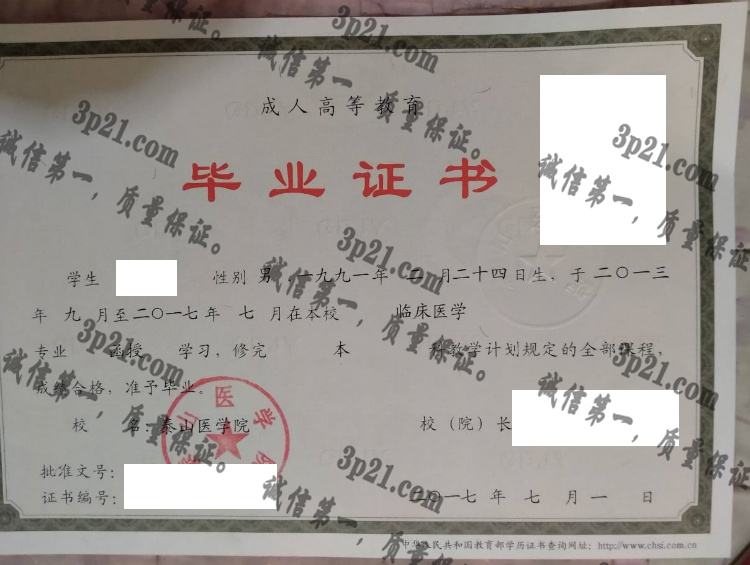 成人高等教育
毕业证书
学生 性别 男 一九九一年 二 月二十四日生，于二〇一三
年 九 月至二〇一七年 七 月在本校 临床医学
专业 函授 学习，修完 本 科教学计划规定的全部课程，
成绩合格，准予毕业。
校 名：泰山医学院
校（院）长
批准文号：
证书编号：
二〇一七 年 七 月 一 日
中华人民共和国教育部学历证书查询网址：http://www.chsi.com.cn
山医学院
3p21.com
诚信第一，质量保证。
3p21.com
诚信第一，质量保证。
3p21.com
诚信第一，质量保证。
3p21.com
诚信第一，质量保证。
3p21.com
诚信第一，质量保证。
3p21.com
诚信第一，质量保证。
3p21.com
诚信第一，质量保证。
3p21.com
诚信第一，质量保证。